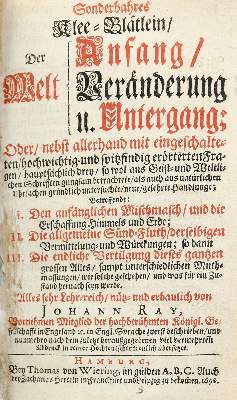 Sonderbahres
Klee-Blätlein/
Der Welt
Anfang/
Veränderung
u. Untergang;
Oder/ nebst allerhand mit eingeschalte-
ten/ hochwichtig- und spitzfindig erörterten Fra-
gen/ hauptsächlich drey/ so wol aus Geist- und Weltli-
chen Schrifften gungsam betrachtete/ als auch aus natürlichen
Uhrsachen gründlich untersuchte/ neue/ gelehrte Handlunge;
Betreffende:
I. Den anfänglichen Mischmasch/ und die
Erschaffung Himmels und Erde;
II. Die allgemeine Sünd-Fluth/ derselbigen
Vermittelung- und Würckungen; so dann
III. Die endliche Vertilgung dieses gantzen
grossen Alles/ sampt unterschiedlichen Muth-
massungen/ wie solche geschehen/ und was für ein Zu-
stand hernach seyn werde.
Alles sehr Lehr-reich/ nütz- und erbaulich von
JOHANN RAY,
Vornehmen Mitglied der hochberühmten Königl. Ge-
sellschafft in Engeland &c. in Engl. Sprache zuerst beschrieben/ und
nunmehro nach dem zuletzt herausgegebenen viel vermehrten
in unser Hochteutsche treulich übersetzet.
HAMBURG,
Bey Thomas von Wiering, im gülden A, B, C. Auch
in Franckfurt und Leipzig zu bekommen, 1698.